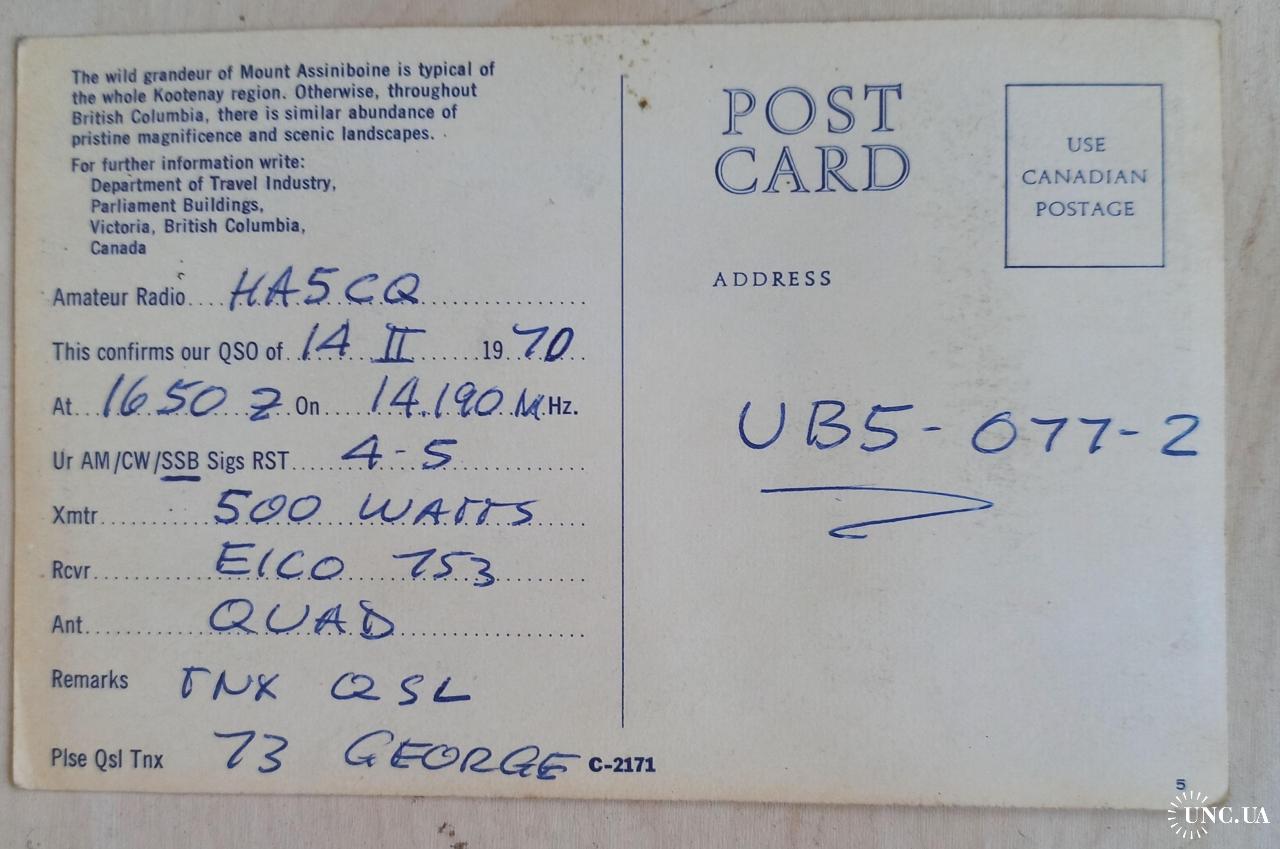 The wild grandeur of Mount Assiniboine is typical of
the whole Kootenay region. Otherwise, throughout
British Columbia, there is similar abundance of
pristine magnificence and scenic landscapes.
For further information write:
Department of Travel Industry,
Parliament Buildings,
Victoria, British Columbia,
Canada
Amateur Radio.... HA5CQ
This confirms our QSO of.. 14 II ...... 19 70
At.. 1650 Z On.... 14.190 M Hz.
Ur AM/CW/SSB Sigs RST..... 4-5
Xmtr........ 500 WATTS
Rcvr........ EICO 753
Ant........ QUAD
Remarks TNX QSL
Plse Qsl Tnx 73 GEORGE C-2171
POST
CARD
USE
CANADIAN
POSTAGE
ADDRESS
UB5-077-2
5
UNC.UA